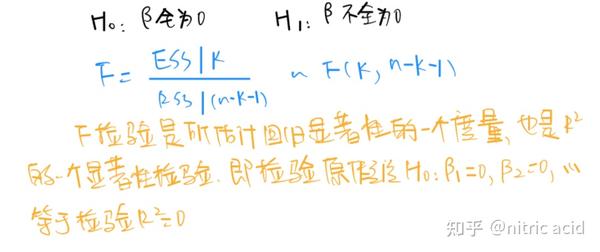 H₀: β全为0 H₁: β不全为0
F = ESS/k / RSS/(n-k-1) ~ F(k, n-k-1)
F检验是所估计回归显著性的一个度量,也是R²
的一个显著性检验.即检验原假设H₀:β₁=0,β₂=0,…
等于检验R²=0
知乎 @nitric acid